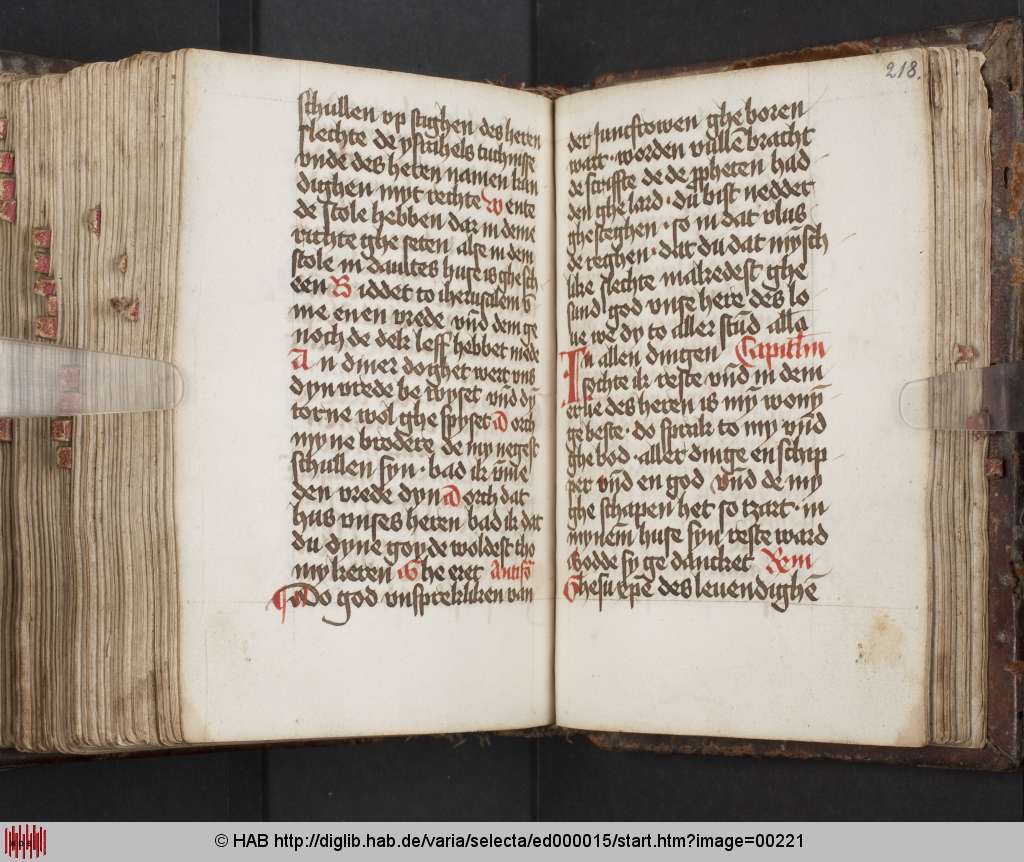 schullen vp stighen des heren
slechte de ysrahels tuchnisse
vnde des heren namen kun
dighen myt rechte Wente
de stole hebben dar in deme
richte ghe seten alse in dem
stole in dauites huse is ghesch
een Biddet to iherusalem v̄
me enen vrede vn̄d dem ge
noch de dek leff hebbet mede
An diner doghet wert vns
dyn vrede be wyset vn̄d dy
torne wol ghe spyset Dorch
myne brodere de my negest
schullen syn · bad ik vm̄e
den vrede dyn Dorch dat
hus vnses heren bad ik dat
du dyne goyde woldest tho
my keren Ghe eret Antifō
Do god vnsprekliken van
218.
der Juncfrowen ghe boren
wart · worden vullēbracht
de scriffte de de ppheten had
den ghe lard · du bist nedder
ghe steghen · so in dat vlus
de reghen · dat du dat mȳsch
like slechte makedest ghe
sund god vnse here des lo
ue we dy to aller stūd alla
In allen dingen Capitl'm
sochte ik reste vn̄d in dem
erue des heren is mȳ wonȳ
ge beste · do sprak to my vn̄d
ghe bod · aller dinge en schip
per vn̄d en god vn̄d de my
ghe schapen het so tzart · in
mynem̄ huse syn reste ward
Godde sy ge dancket
Ghesu epē des leuendighē
© HAB http://diglib.hab.de/varia/selecta/ed000015/start.htm?image=00221